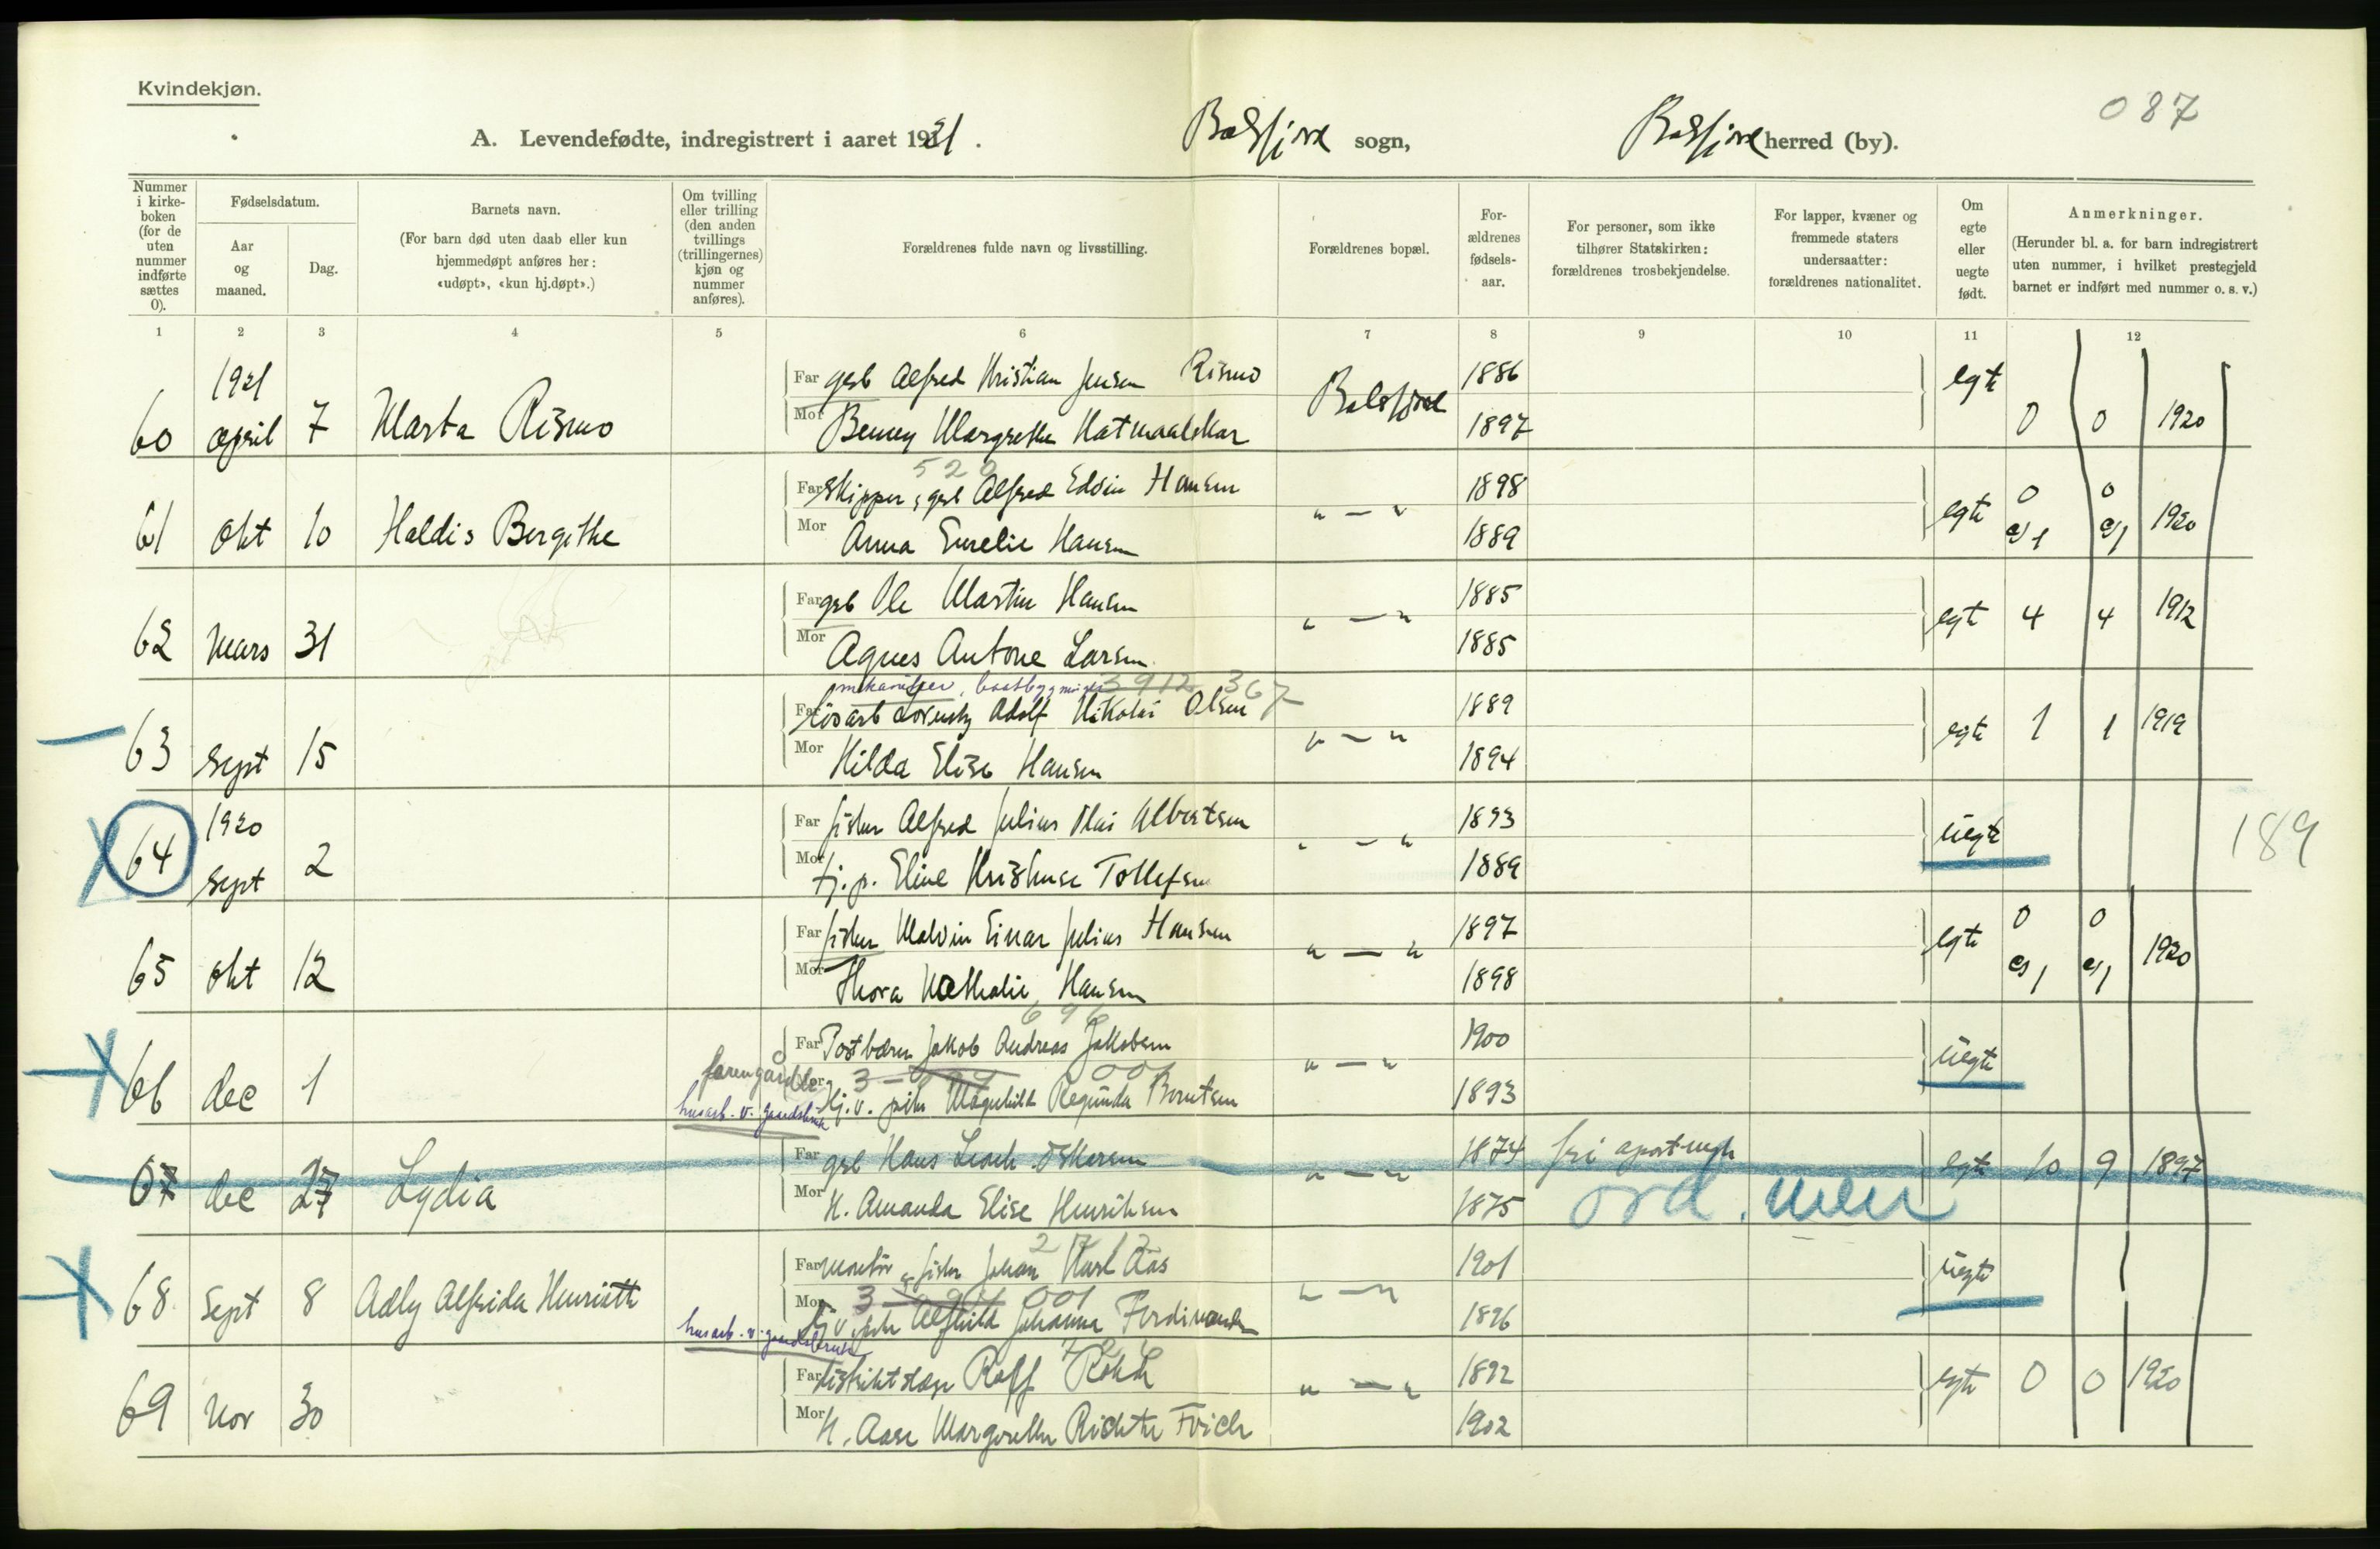 Kvindekjøn.
087
A. Levendefødte, indregistrert i aaret 1921.
Balsfjord sogn,
Balsfjord herred (by).
Nummer i kirke-boken (for de uten nummer indførte sættes 0).
Fødselsdatum.
Aar og maaned.
Dag.
Barnets navn.
(For barn død uten daab eller kun hjemmedøpt anføres her: «udøpt», «kun hj.døpt».)
Om tvilling eller trilling (den anden tvillings (trillingernes) kjøn og nummer anføres).
Forældrenes fulde navn og livsstilling.
Forældrenes bopæl.
For-ældrenes fødsels-aar.
For personer, som ikke tilhører Statskirken: forældrenes trosbekjendelse.
For lapper, kvæner og fremmede staters undersaatter: forældrenes nationalitet.
Om egte eller uegte født.
Anmerkninger.
(Herunder bl. a. for barn indregistrert uten nummer, i hvilket prestegjeld barnet er indført med nummer o. s. v.)
1 2 3 4 5 6 7 8 9 10 11 12
1921
Far gsb Alfred Kristian Jensen Rismo 1886
60 april 7 Marta Rismo Balsfjord egte 0 0 1920
Mor Benny Margrethe Hatmaalskar 1897
520
Far Skipper, gsb Alfred Edvin Hansen 1898
61 Okt 10 Haldis Bergithe " — " egte 0 0 1920
Mor Anna Emelie Hansen 1889
Far gsb Ole Martin Hansen 1885
62 Mars 31 " — " egte 4 4 1912
Mor Agnes Antone Larsen 1885
3912 367
Far løsarb Lorentz Adolf Nikolai Olsen 1889
63 Sept 15 " — " egte 1 1 1919
Mor Hilda Elise Hansen 1894
1920
Far fisker Alfred Julius Olai Albertsen 1893
64 Sept 2 " — " uegte 189
Mor tj.p. Eline Kristine Tollefsen 1889
Far fisker Malvin Einar Julius Hansen 1897
65 Okt 12 " — " egte 0 0 1920
Mor Thora Nathalie Hansen 1898
696
Far Postbærer Jakob Andreas Jakobsen 1900
66 dec 1 " — " uegte
husarb. v. gaardsbruk
Mor tj.v. pike Magnhild Reginda Berntsen 1893
Far gsb Hans Leach Oskarsen 1874 fri apost-
67 dec 27 Lydia " — " egte 10 9 1897
Mor H. Amanda Elise Henriksen 1875 ord. men
Far Montør & fisker Johan Karl Aas 1901
68 Sept 8 Adly Alfrida Henriette " — " uegte
husarb. v. gaardsbruk
Mor tj.v. pike Alfhild Johanna Ferdinandsen 1896
Far distriktslæge Rolf 1892
69 Nov 30 " — " egte 0 0 1920
Mor H. Aase Margrethe Richter Frich 1902